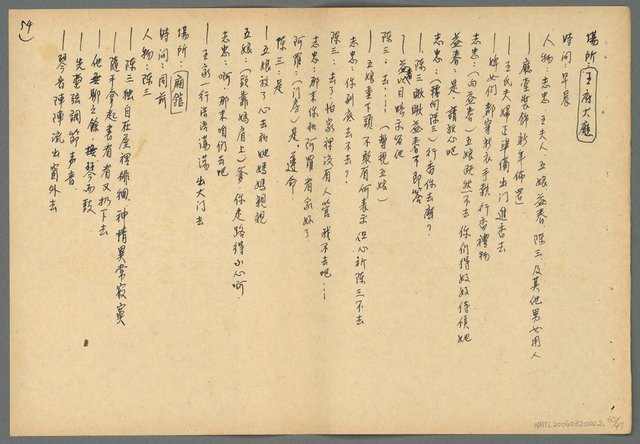 場所：王府大廳
時間：早晨
人物：志忠 王夫人 五娘 益春 陳三及其他男女用人
—廳堂裝飾新年佈置
—王氏夫婦正準備出門進香去
—婢女们都穿新衣手執行香禮物
志忠：(向益春)五娘既然不去你們得好好侍侯她
益春：是 請放心吧
志忠：(轉向陳三)行香你去麼？
—陳三瞅瞅益春不即答
—益春以目暗示留他
陳三：去！……(暫視五娘)
—五娘垂下頭不敢有何表示但心祈陳三不去
志忠：你到底去不去？
陳三：去了怕家裡沒有人管 我不去吧……
志忠：那末你和阿羅看家好了
阿羅：(门房)是 遵命
陳三：是
—五娘放了心去和她媽媽親親
五娘：(頭靠媽肩上)爹，你走路得小心啊
志忠：啊，那末咱们去吧
—王家一行浩浩蕩蕩出大门去
場所：廂館
時間：同前
人物：陳三
—陳三独自在屋裡徘徊，神情異常寂寞
—隨手拿起書看看又扔下去
—他無聊之餘，撫琴而鼓
—先電弦調節声音
—琴音陣陣流出窗外去
54)
NMTL20060320002, 52/97